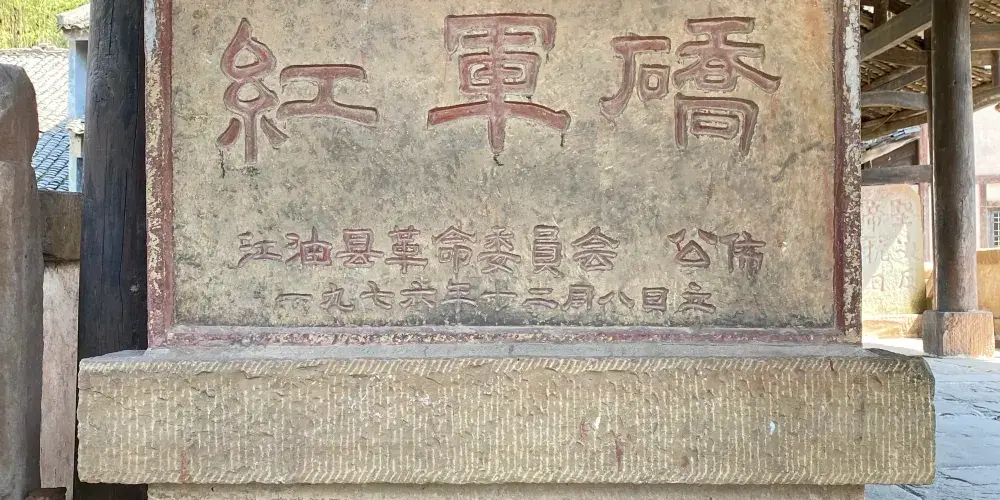 紅軍礄
江油县革命委員会 公佈
一九七六年十二月八日立